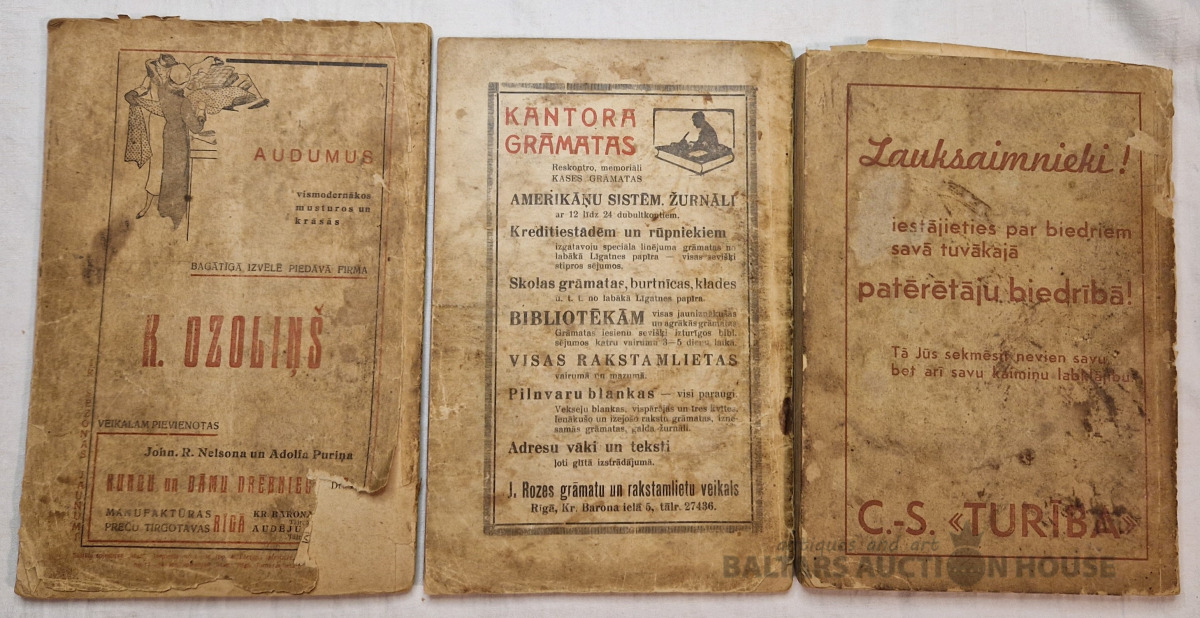 AUDUMUS
vismodernākos
musturos un
krāsās
BAGĀTĪGĀ IZVĒLĒ PIEDĀVĀ FIRMA
K. OZOLIŅŠ
VEIKALAM PIEVIENOTAS
John. R. Nelsona un Adolfa Puriņa
KUNGU un DĀMU DRĒBNIEC
MANUFAKTŪRAS
PREČU TIRGOTAVAS
RĪGĀ
KR BARONA
AUDĒJU
KANTORA
GRĀMATAS
Reskontro, memoriāli
KASES GRĀMATAS
AMERIKĀŅU SISTĒM. ŽURNĀLI
ar 12 līdz 24 dubultkontiem.
Kreditiestādēm un rūpniekiem
izgatavoju speciāla linējuma grāmatas no
labākā Līgatnes papīra — visas sevišķi
stipros sējumos.
Skolas grāmatas, burtnīcas, klades
u. t. t. no labākā Līgatnes papīra.
BIBLIOTĒKĀM visas jaunianākušās
un agrākās grāmatas
Grāmatas iesienu sevišķi izturīgos bibl.
sējumos katru vairumu 3—5 dienu laikā.
VISAS RAKSTAMLIETAS
vairumā un mazumā.
Pilnvaru blankas — visi paraugi.
Vekseļu blankas, vispārējās un īres kvītes,
Ienākušo un izejošo rakstu grāmatas, iznē-
samās grāmatas, galda žurnāli.
Adresu vāki un teksti
ļoti glītā izstrādājumā.
J. Rozes grāmatu un rakstamlietu veikals
Rīgā, Kr. Barona ielā 5, tālr. 27436.
Lauksaimnieki!
iestājieties par biedriem
savā tuvākajā
patērētāju biedrībā!
Tā Jūs sekmēsit nevien savu,
bet arī savu kaimiņu labklājību
C.-S. «TURĪBA»
antiques and art
BALTERS AUCTION HOUSE